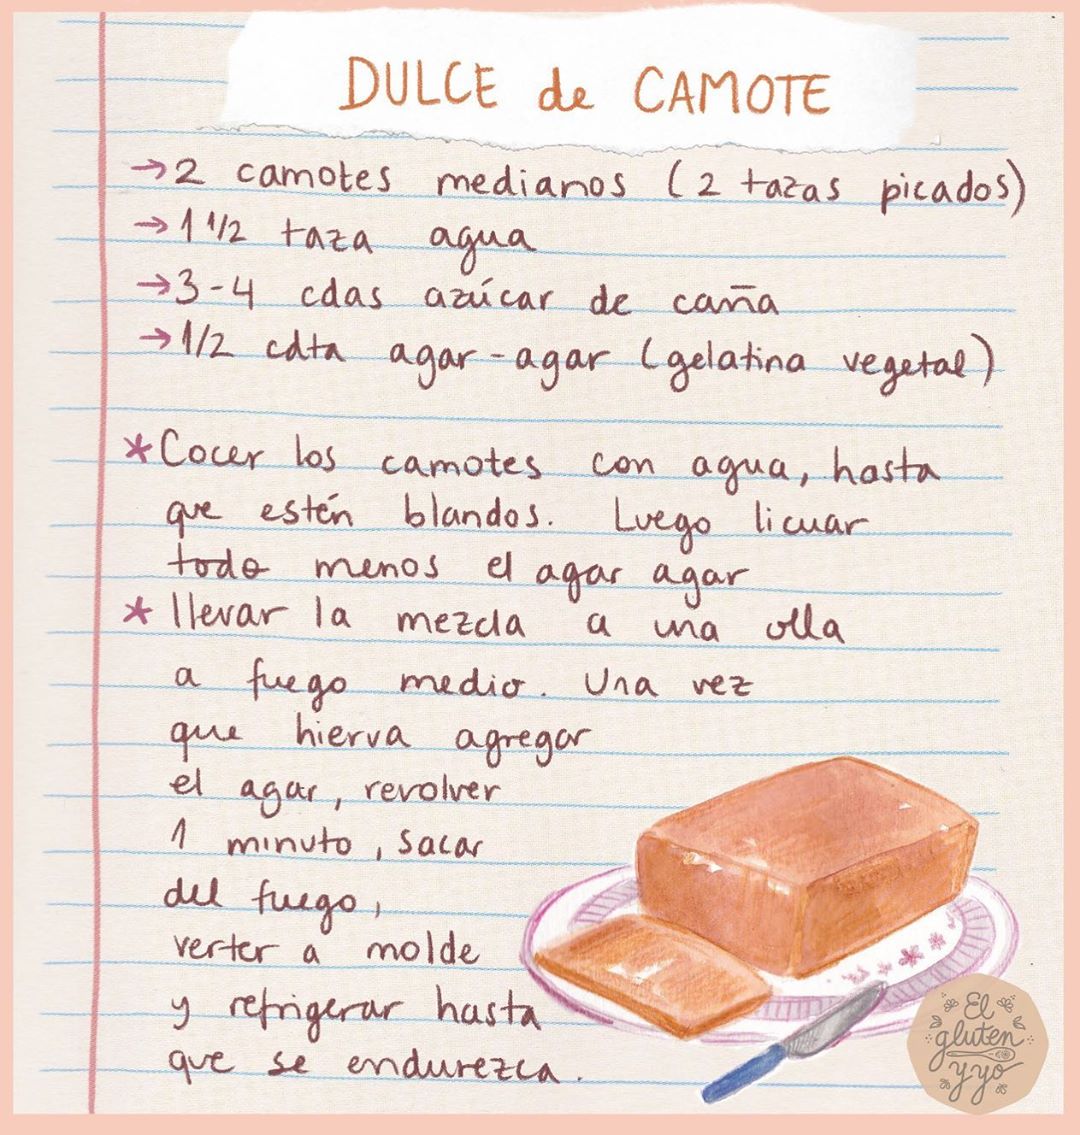 DULCE de CAMOTE
→2 camotes medianos (2 tazas picados)
→1 1/2 taza agua
→3-4 cdas azúcar de caña
→1/2 cdta agar-agar (gelatina vegetal)
*Cocer los camotes con agua, hasta
que estén blandos. Luego licuar
todo menos el agar agar
* llevar la mezcla a una olla
a fuego medio. Una vez
que hierva agregar
el agar, revolver
1 minuto, sacar
del fuego,
verter a molde
y refrigerar hasta
que se endurezca.
El
gluten
y yo